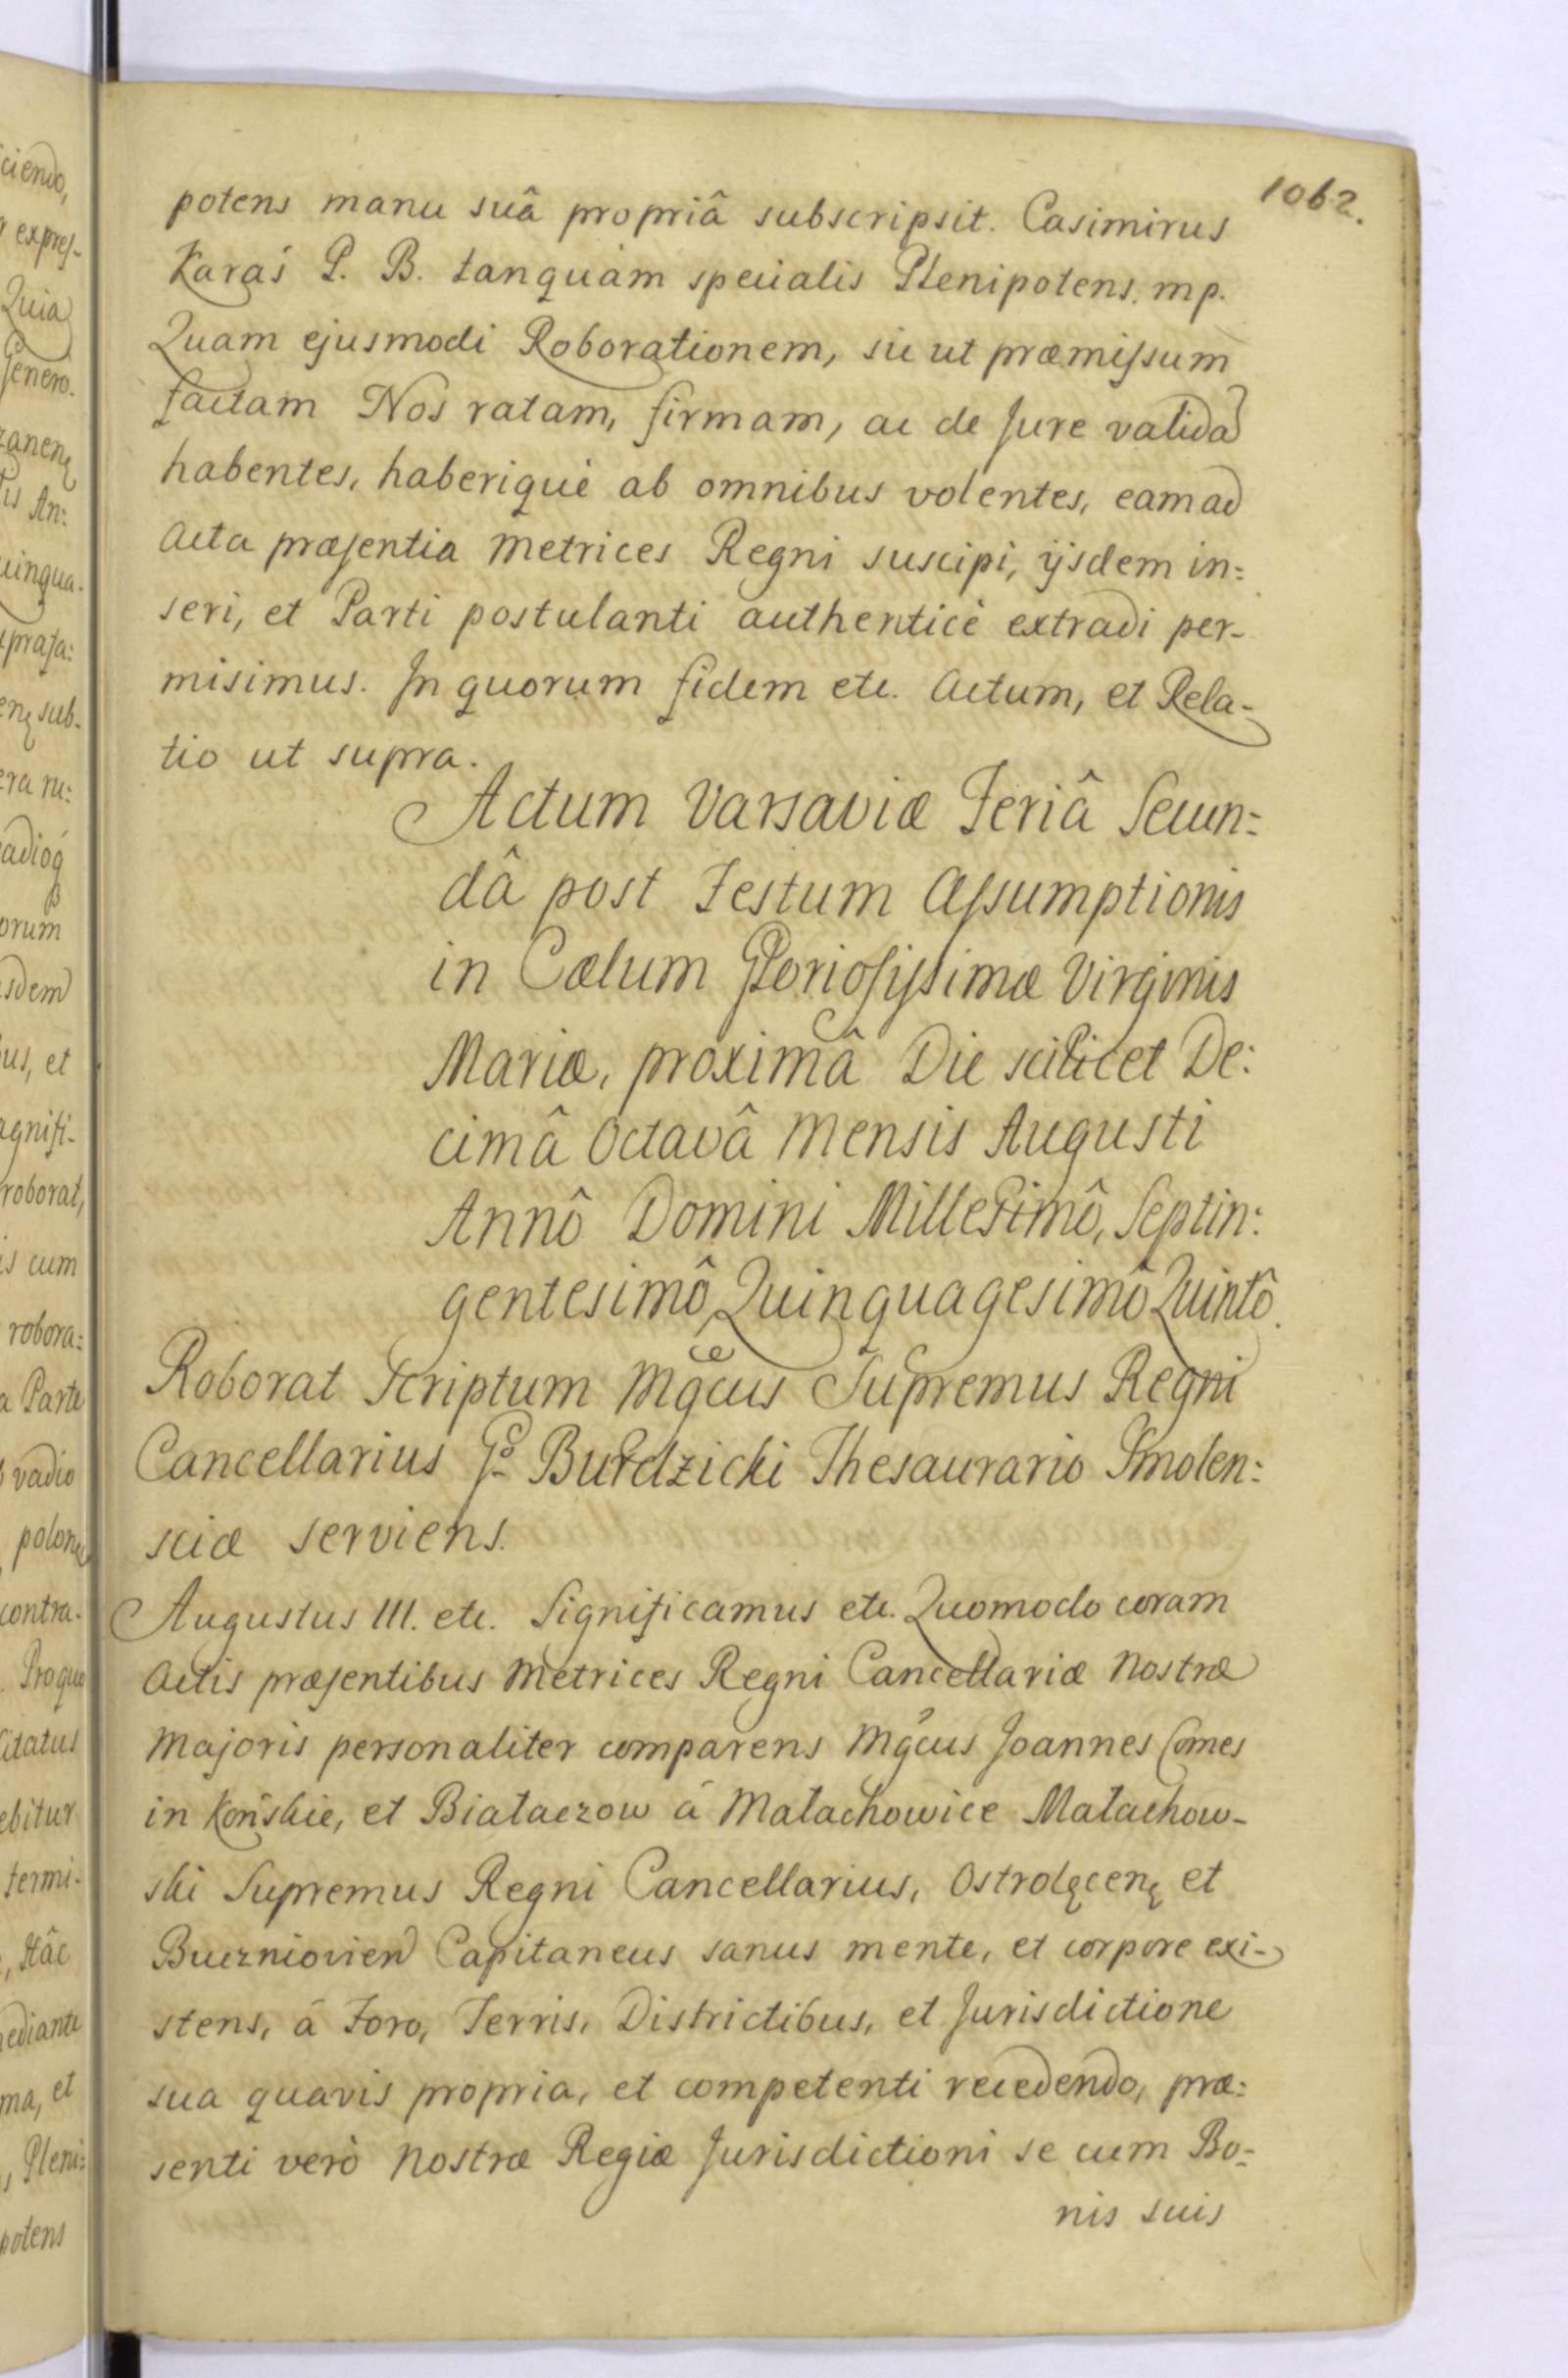 1062.
potens manu suâ propriâ subscripsit. Casimirus
Karaś P. B. tanquàm specialis Plenipotens. mp.
Quam ejusmodi Roborationem, sic ut præmissum
factam Nos ratam, firmam, ac de Jure valida
habentes, haberiquè ab omnibus volentes, eam ad
Acta præsentia Metrices Regni suscipi, ijsdem in:
seri, et Parti postulanti authenticè extradi per-
misimus. In quorum fidem etc. Actum, et Rela-
tio ut supra.
Actum Varsaviæ Feriâ Secun:
dâ post Festum Assumptionis
in Cælum Gloriosissimæ Virginis
Mariæ, proximâ Die scilicet De:
cimâ Octavâ Mensis Augusti
Annô Domini Millesimô, Septin:
gentesimô, Quinquagesimô Quintô.
Roborat Scriptum Mgcus Supremus Regni
Cancellarius Gº Burdzicki Thesaurario Smolen:
sciæ serviens.
Augustus III. etc. Significamus etc. Quomodo coram
Actis præsentibus Metrices Regni Cancellariæ Nostræ
Majoris personaliter comparens Mgcus Joannes Comes
in Końskie, et Białaczow á Małachowice Małachow-
ski Supremus Regni Cancellarius, Ostrolęcenę et
Buczniovien Capitaneus sanus mente, et corpore exi-
stens, á Foro, Terris, Districtibus, et Jurisdictione
sua quavis propria, et competenti recedendo, præ:
senti verò Nostræ Regiæ Jurisdictioni se cum Bo-
nis suis
ciendo,
expres-
Quia
Genero.
An:
uingua.
sub-
orum
us, et
agnifi-
roborat,
is cum
robora:
a Parte
vadio
contra.
Pro quo
citatus
ebitur
termi-
, Hâc
ediante
ma, et
, Pleni:
potens